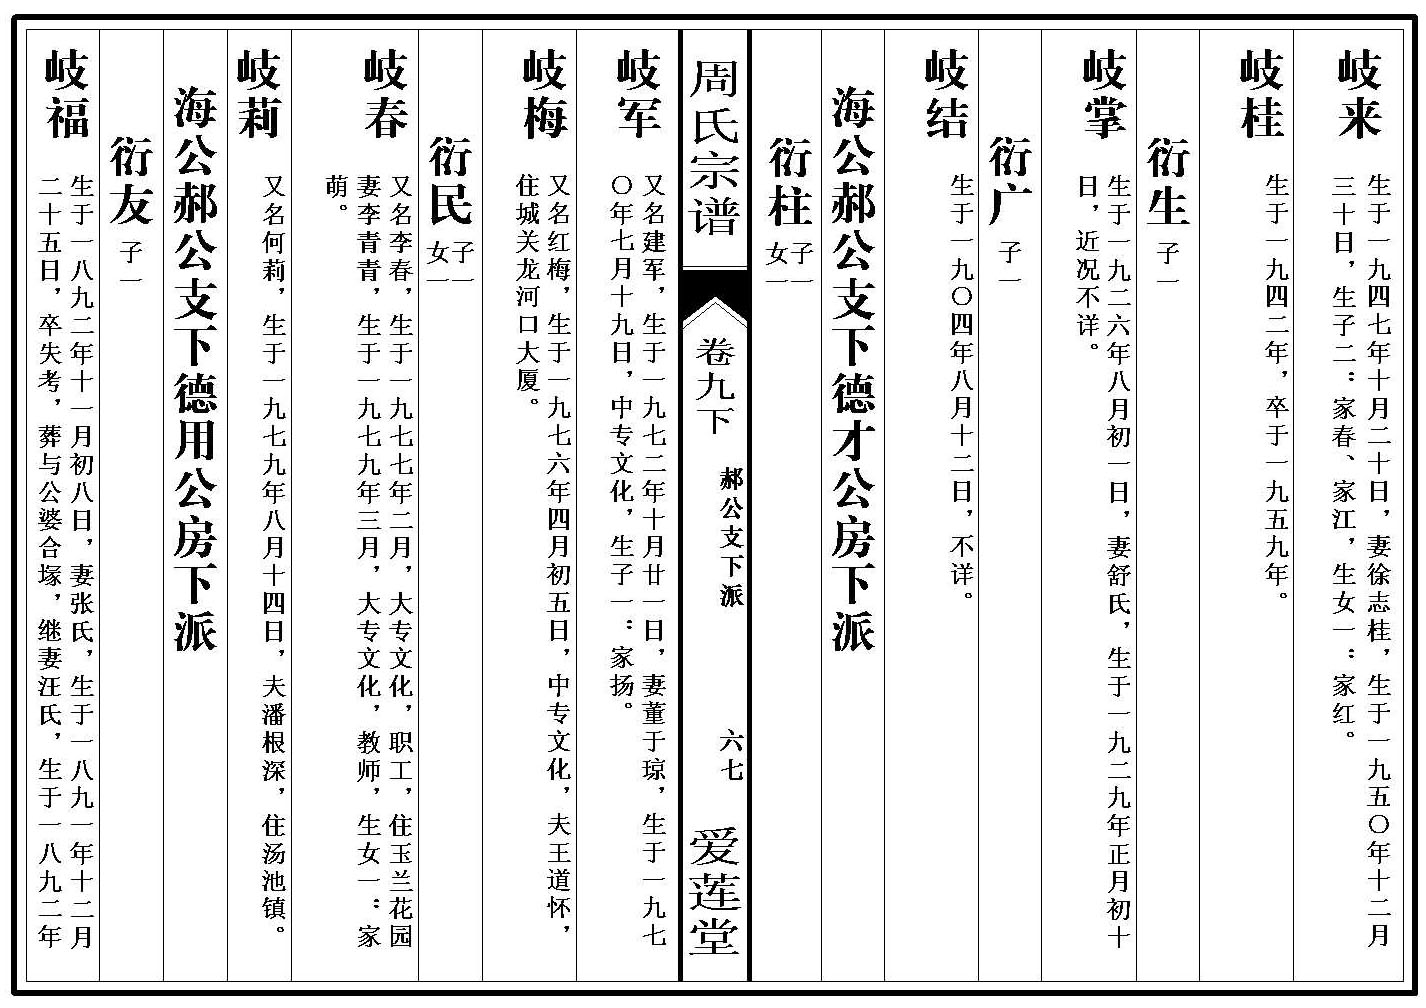 岐来
生于一九四七年十月二十日，妻徐志桂，生于一九五〇年十二月
三十日，生子二：家春、家江，生女一：家红。
岐桂
生于一九四二年，卒于一九五九年。
衍生
子一
岐掌
生于一九二六年八月初一日，妻舒氏，生于一九二九年正月初十
日，近况不详。
衍广
子一
岐结
生于一九〇四年八月十二日，不详。
海公郝公支下德才公房下派
衍柱
子一
女一
周氏宗谱
卷九下
郝公支下派
六七
爱莲堂
岐军
又名建军，生于一九七二年十月廿一日，妻董于琼，生于一九七
〇年七月十九日，中专文化，生子一：家扬。
岐梅
又名红梅，生于一九七六年四月初五日，中专文化，夫王道怀，
住城关龙河口大厦。
衍民
子一
女一
岐春
又名李春，生于一九七七年二月，大专文化，职工，住玉兰花园
妻李青青，生于一九七九年三月，大专文化，教师，生女一：家
萌。
岐莉
又名何莉，生于一九七九年八月十四日，夫潘根深，住汤池镇。
海公郝公支下德用公房下派
衍友
子一
岐福
生于一八九二年十一月初八日，妻张氏，生于一八九一年十二月
二十五日，卒失考，葬与公婆合塚，继妻汪氏，生于一八九二年